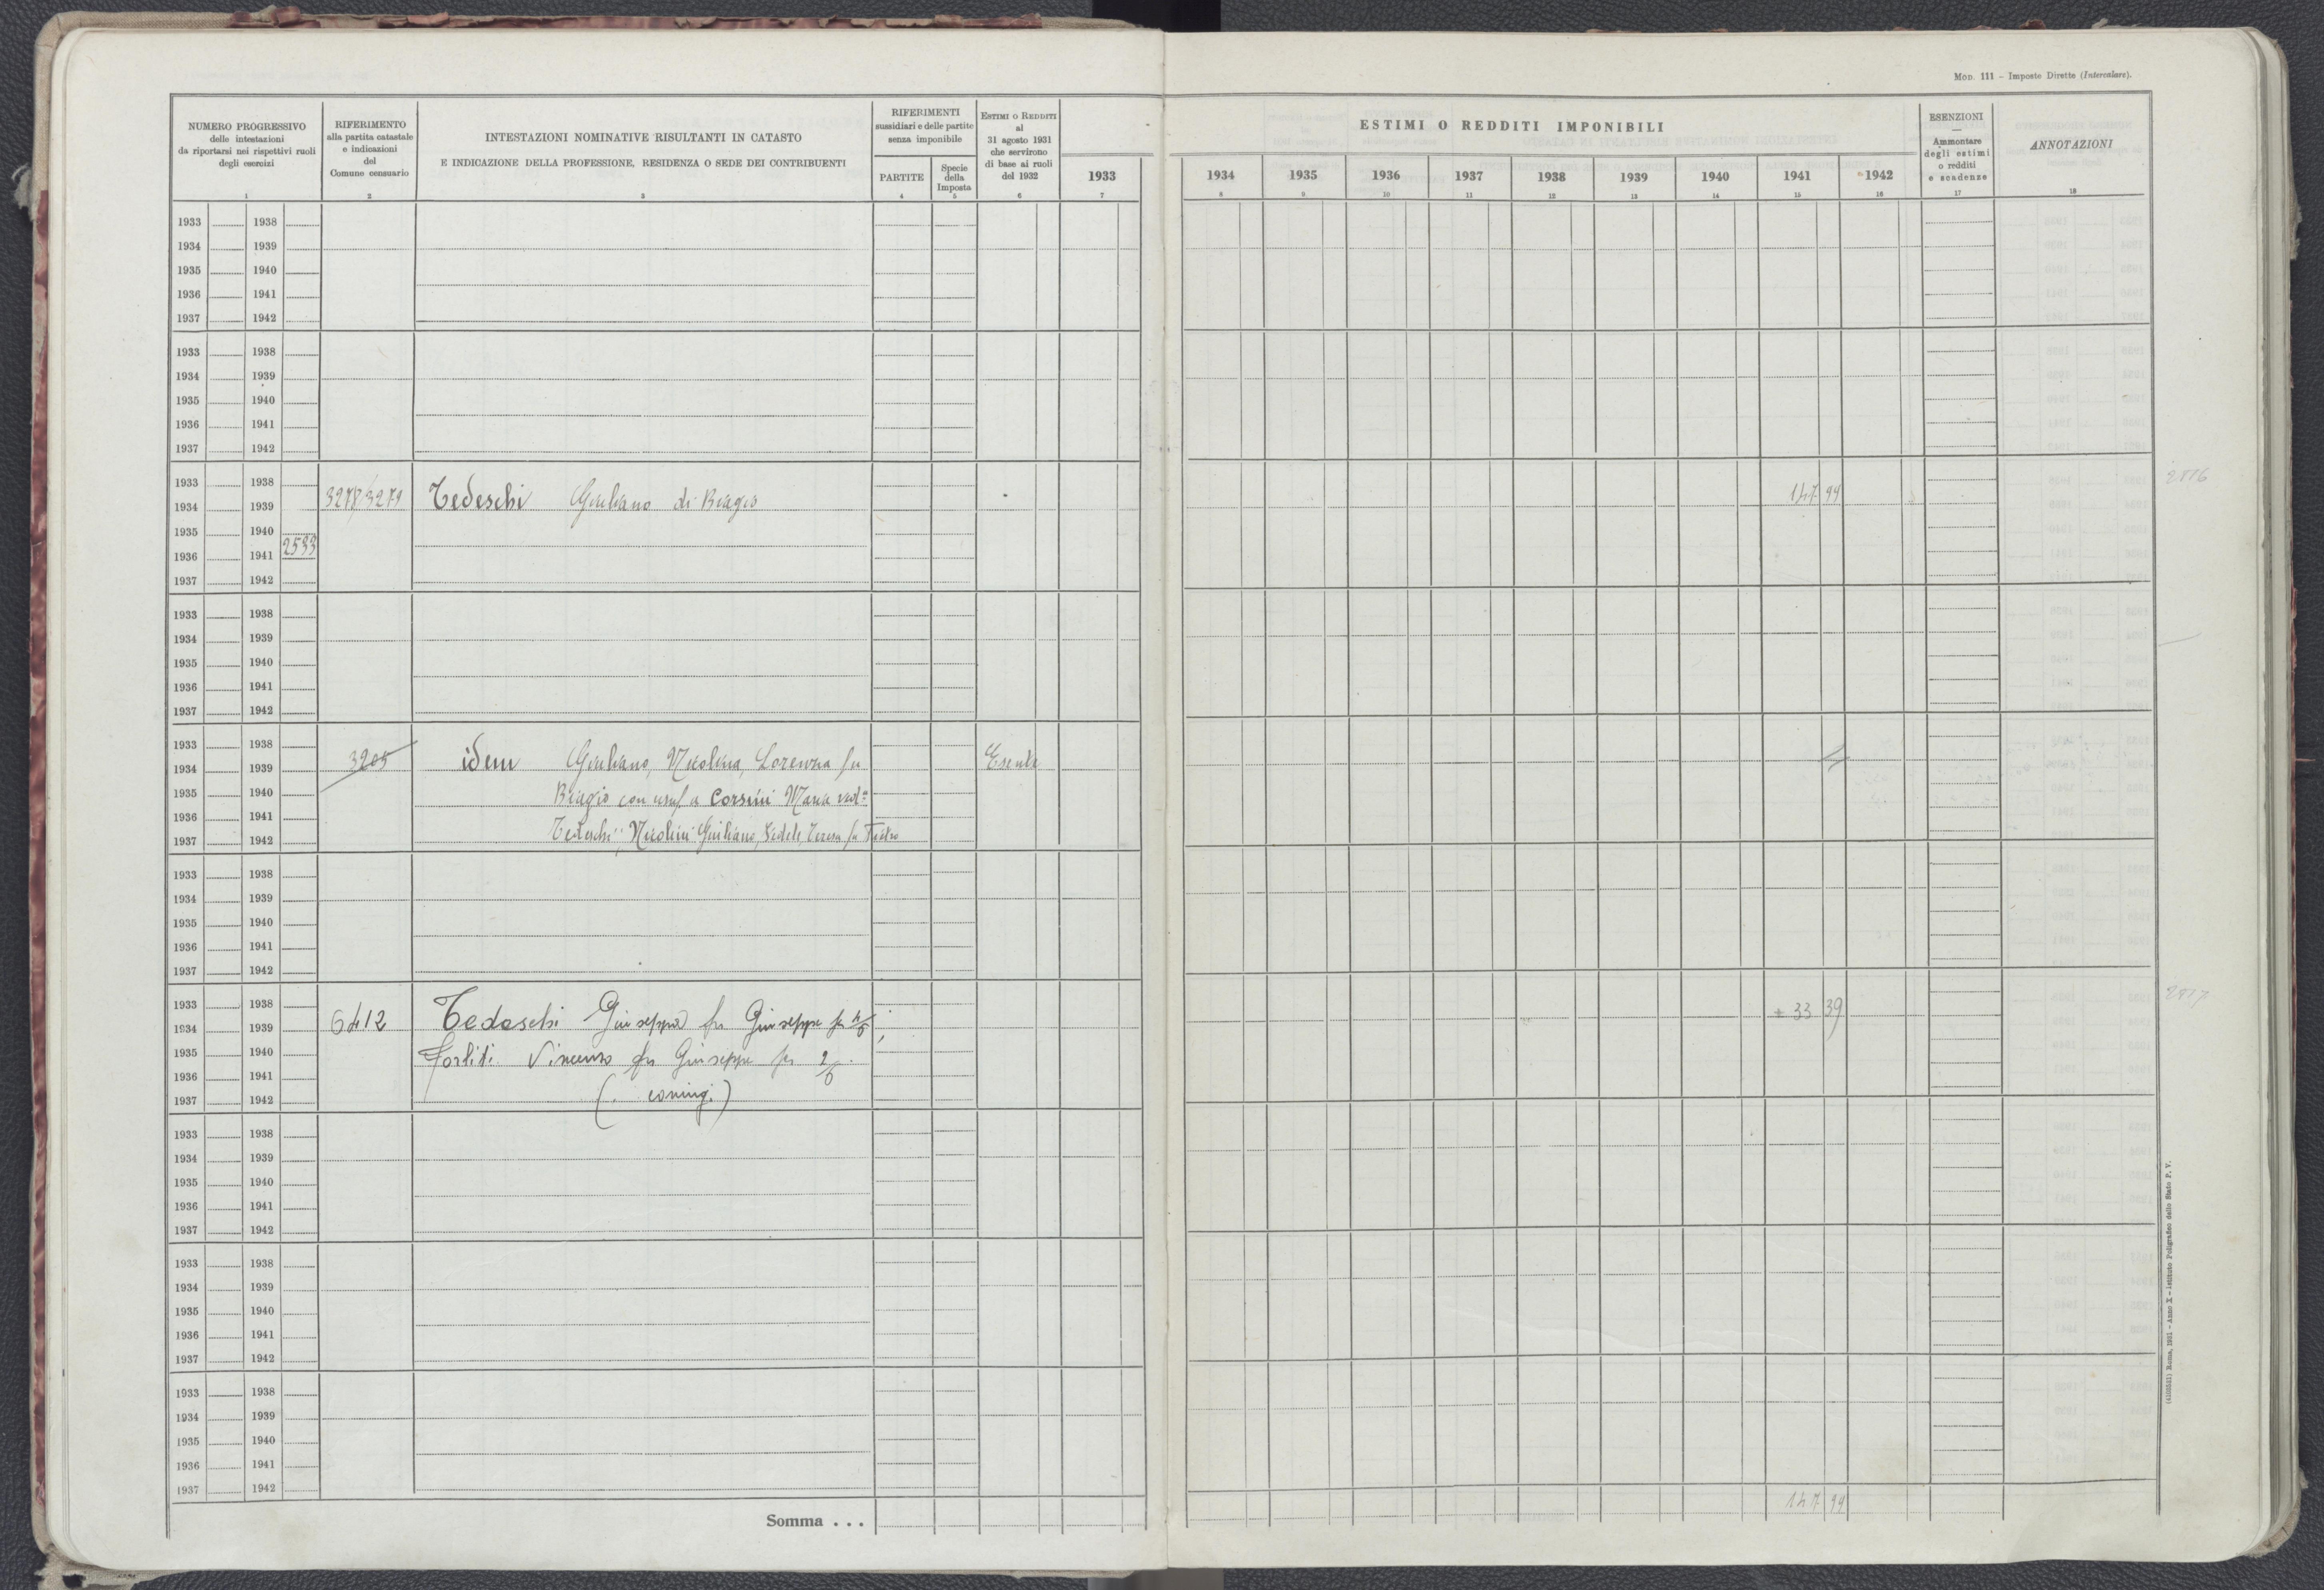 Mod. 111 - Imposte Dirette (Intercalare).
NUMERO PROGRESSIVO
delle intestazioni
da riportarsi nei rispettivi ruoli
degli esercizi
1
RIFERIMENTO
alla partita catastale
e indicazioni
del
Comune censuario
2
INTESTAZIONI NOMINATIVE RISULTANTI IN CATASTO
E INDICAZIONE DELLA PROFESSIONE, RESIDENZA O SEDE DEI CONTRIBUENTI
3
RIFERIMENTI
sussidiari e delle partite
senza imponibile
PARTITE
4
Specie
della
Imposta
5
Estimi o Redditi
al
31 agosto 1931
che servirono
di base ai ruoli
del 1932
6
1933
7
ESTIMI O REDDITI IMPONIBILI
1934 1935 1936 1937 1938 1939 1940 1941 1942
8 9 10 11 12 13 14 15 16
ESENZIONI
—
Ammontare
degli estimi
o redditi
e scadenze
17
ANNOTAZIONI
18
1933 1938
1934 1939
1935 1940
1936 1941
1937 1942
1933 1938
1934 1939
1935 1940
1936 1941
1937 1942
1933 1938
1934 1939 3278/3279 Tedeschi Giuliano di Biagio 147 99
1935 1940
1936 1941 2533
1937 1942
1933 1938
1934 1939
1935 1940
1936 1941
1937 1942
1933 1938
1934 1939 3205 idem Giuliano, Nicolina, Lorenza fu Esente
1935 1940 Biagio con usuf. a Corsini Maria ved.a
1936 1941
1937 1942 Tedeschi; Nicolini Giuliano, Fedele, Teresa fu Pietro
1933 1938
1934 1939
1935 1940
1936 1941
1937 1942
1933 1938
1934 1939 6412 Tedeschi Giuseppa fu Giuseppe per 4/6; + 33 39
1935 1940 Vincenzo fu Giuseppe per 2/6.
1936 1941
1937 1942 (. coniugi.)
1933 1938
1934 1939
1935 1940
1936 1941
1937 1942
1933 1938
1934 1939
1935 1940
1936 1941
1937 1942
1933 1938
1934 1939
1935 1940
1936 1941
1937 1942
Somma . . . 147 99
Roma, 1931 - Anno X - Istituto Poligrafico dello Stato P. V.